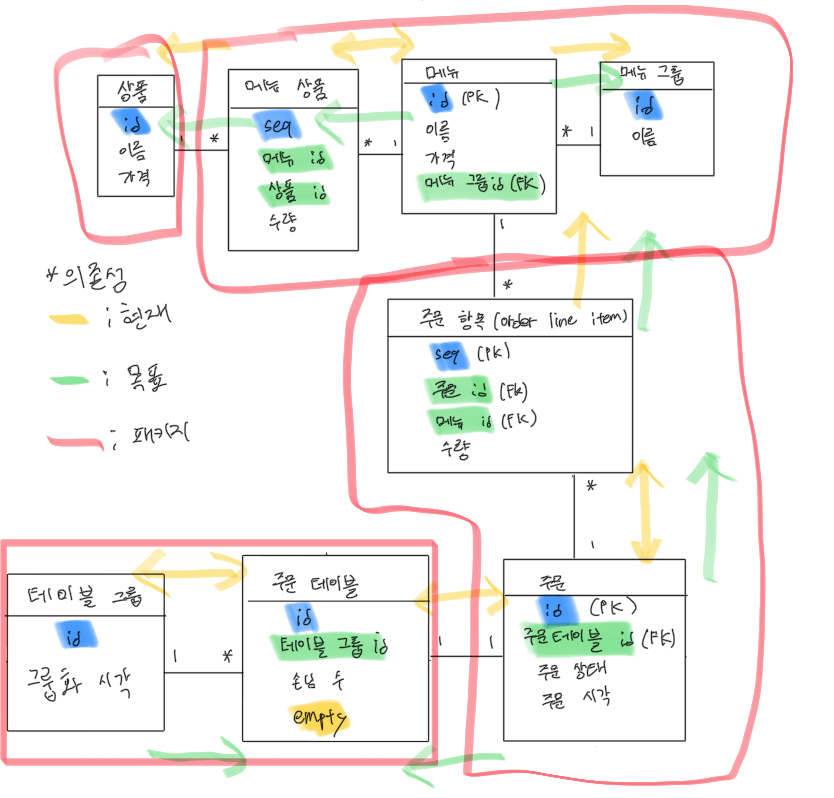 상품
id
이름
가격
1
*
메뉴 상품
seq
메뉴 id
상품 id
수량
*
1
메뉴
id (PK)
이름
가격
메뉴 그룹id (FK)
*
1
메뉴 그룹
id
이름
1
*
*의존성
; 현재
; 목표
; 패키지
주문 항목 (order line item)
seq (PK)
주문 id (FK)
메뉴 id (FK)
수량
*
1
테이블 그룹
id
그룹화 시각
1
*
주문 테이블
id
테이블 그룹 id
손님 수
empty
1
1
주문
id (PK)
주문테이블 id (FK)
주문 상태
주문 시각